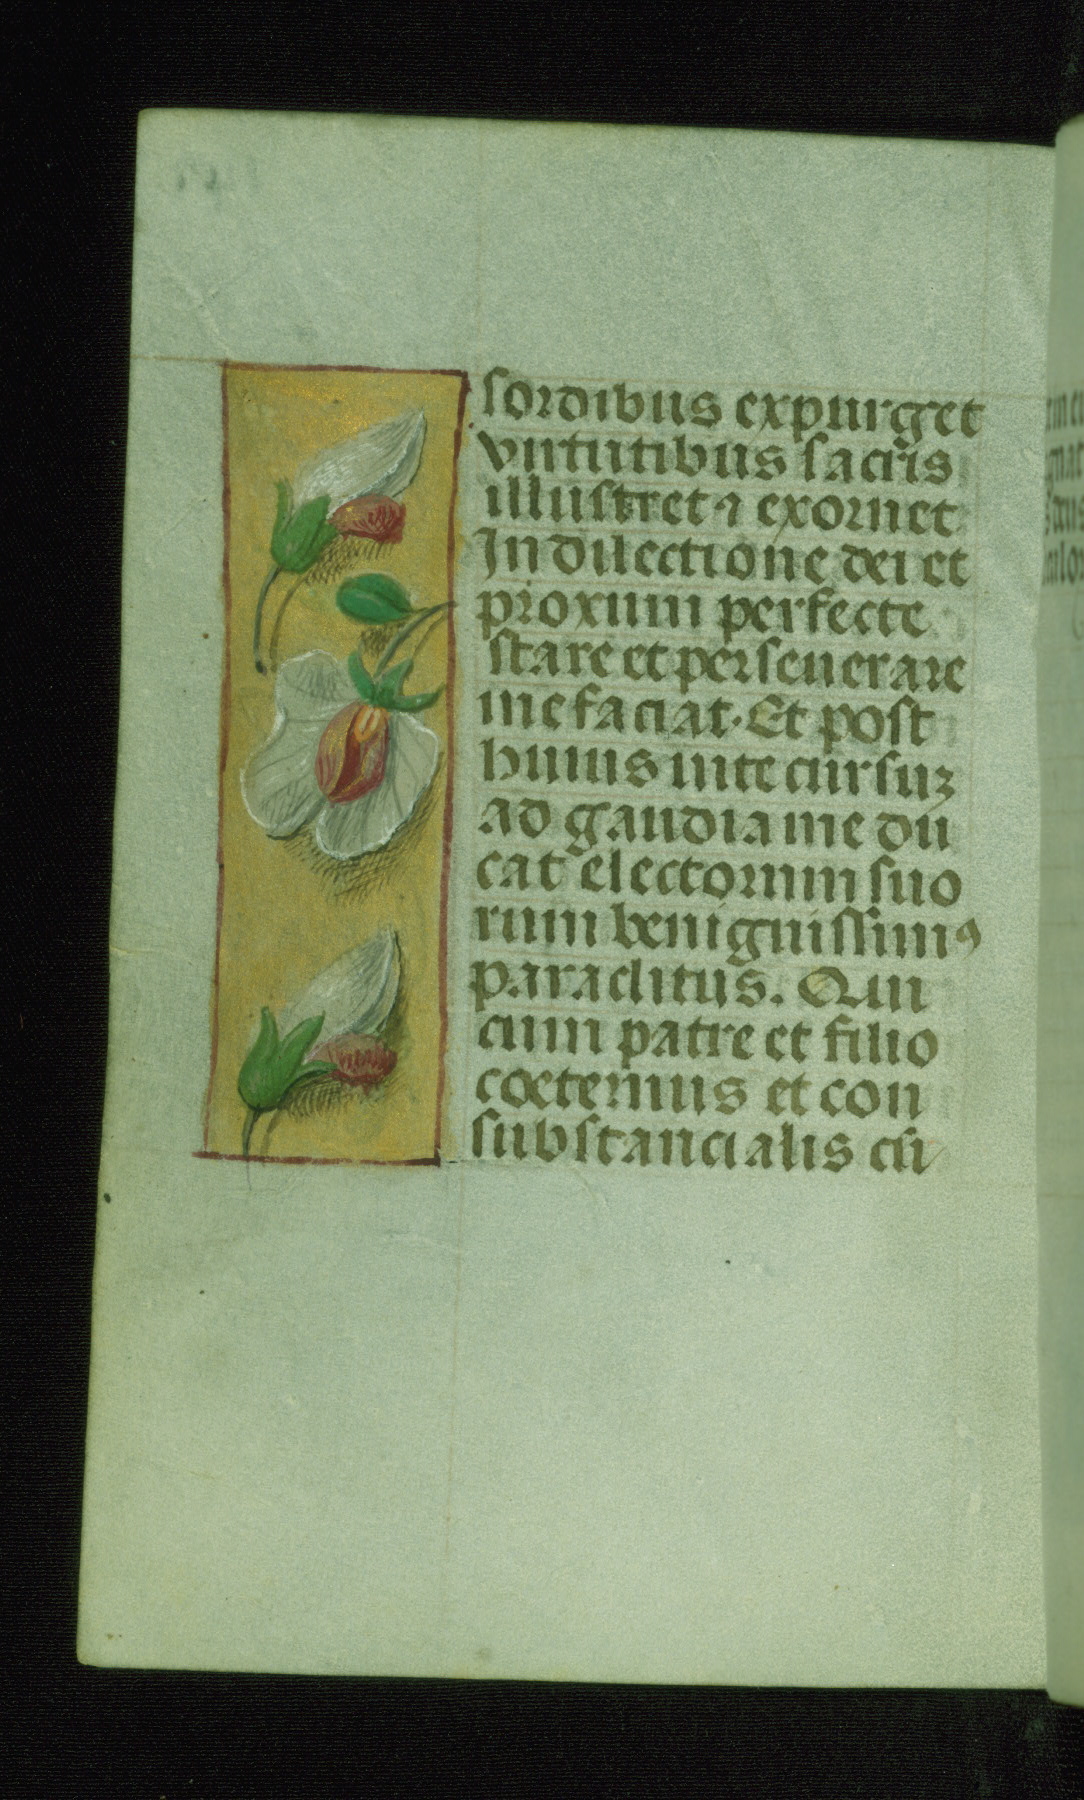 sordibus expurget
virtutibus sacris
illustret ⁊ exornet
In dilectione dei et
proximi perfecte
stare et perseuerare
me faciat. Et post
huius uite cursuz
ad gaudia me du
cat electorum suo
rum benignissimꝰ
paraclitus. Qui
cum patre et filio
coeternus et con
substancialis cū